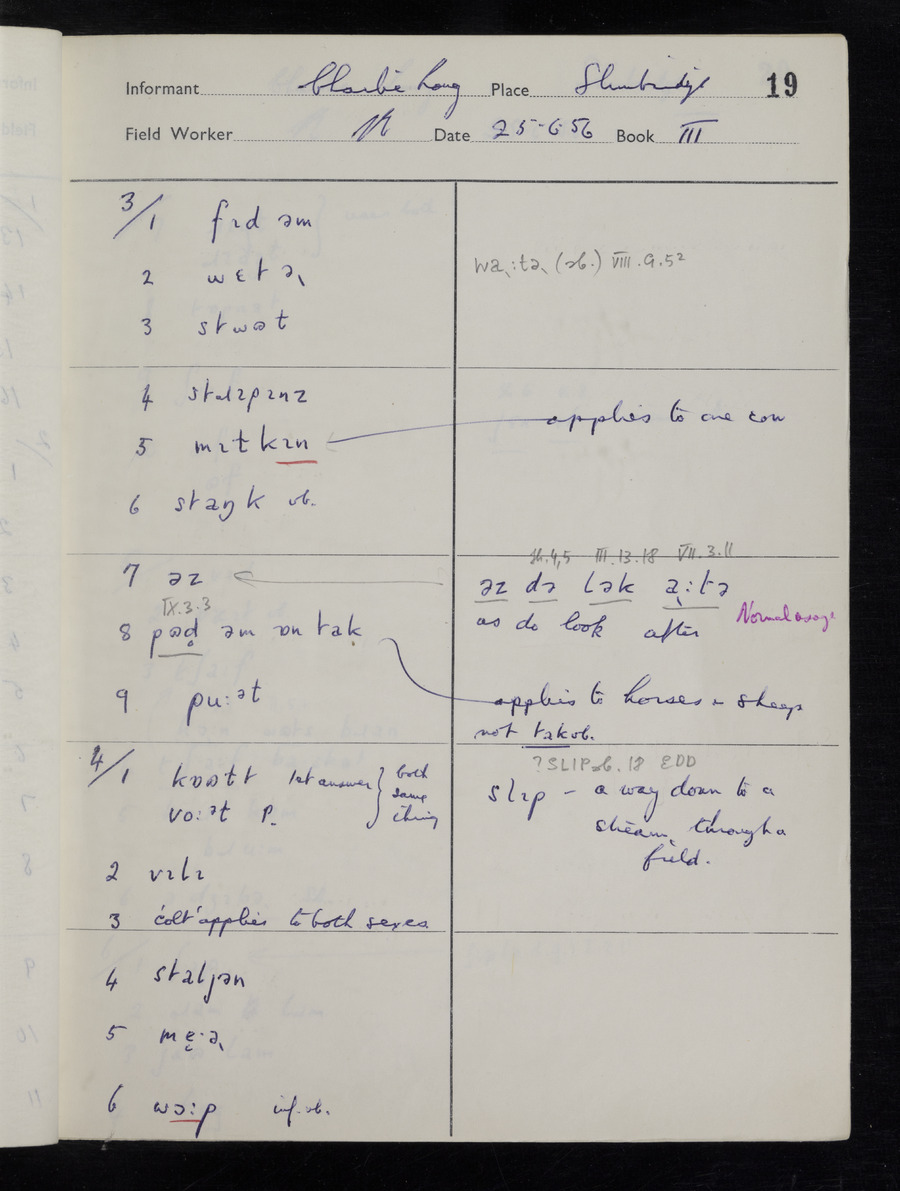 Informant Charlie Long Place Slimbridge 19
Field Worker Date 25-6-56 Book III
3/1 fɪd əm
2 wɛtə˞ wa˞:tə˞ (sb.) VIII.9.5²
3 stwət
4 stɑɪpɪnz
5 mɪtkɪn applies to one cow
6 staŋk vb.
sh.4,5 III.13.18 VII.3.11
7 əz əz də lək a:tə
IX.3.3 as do look after Normal usage
8 pəd̥ əm ɒn tak
9 pu:ət applies to horses & sheep
not takvb.
4/1 kɒətt 1st answer } both same thing ?SLIP sb. 18 EDD
vo:ət P. slɪp – a way down to a
stream, through a
field.
2 vɪlɪ
3 'colt' applies to both sexes
4 staljən
5 mɛ·ə˞
6 wɔ:p inf. vb.